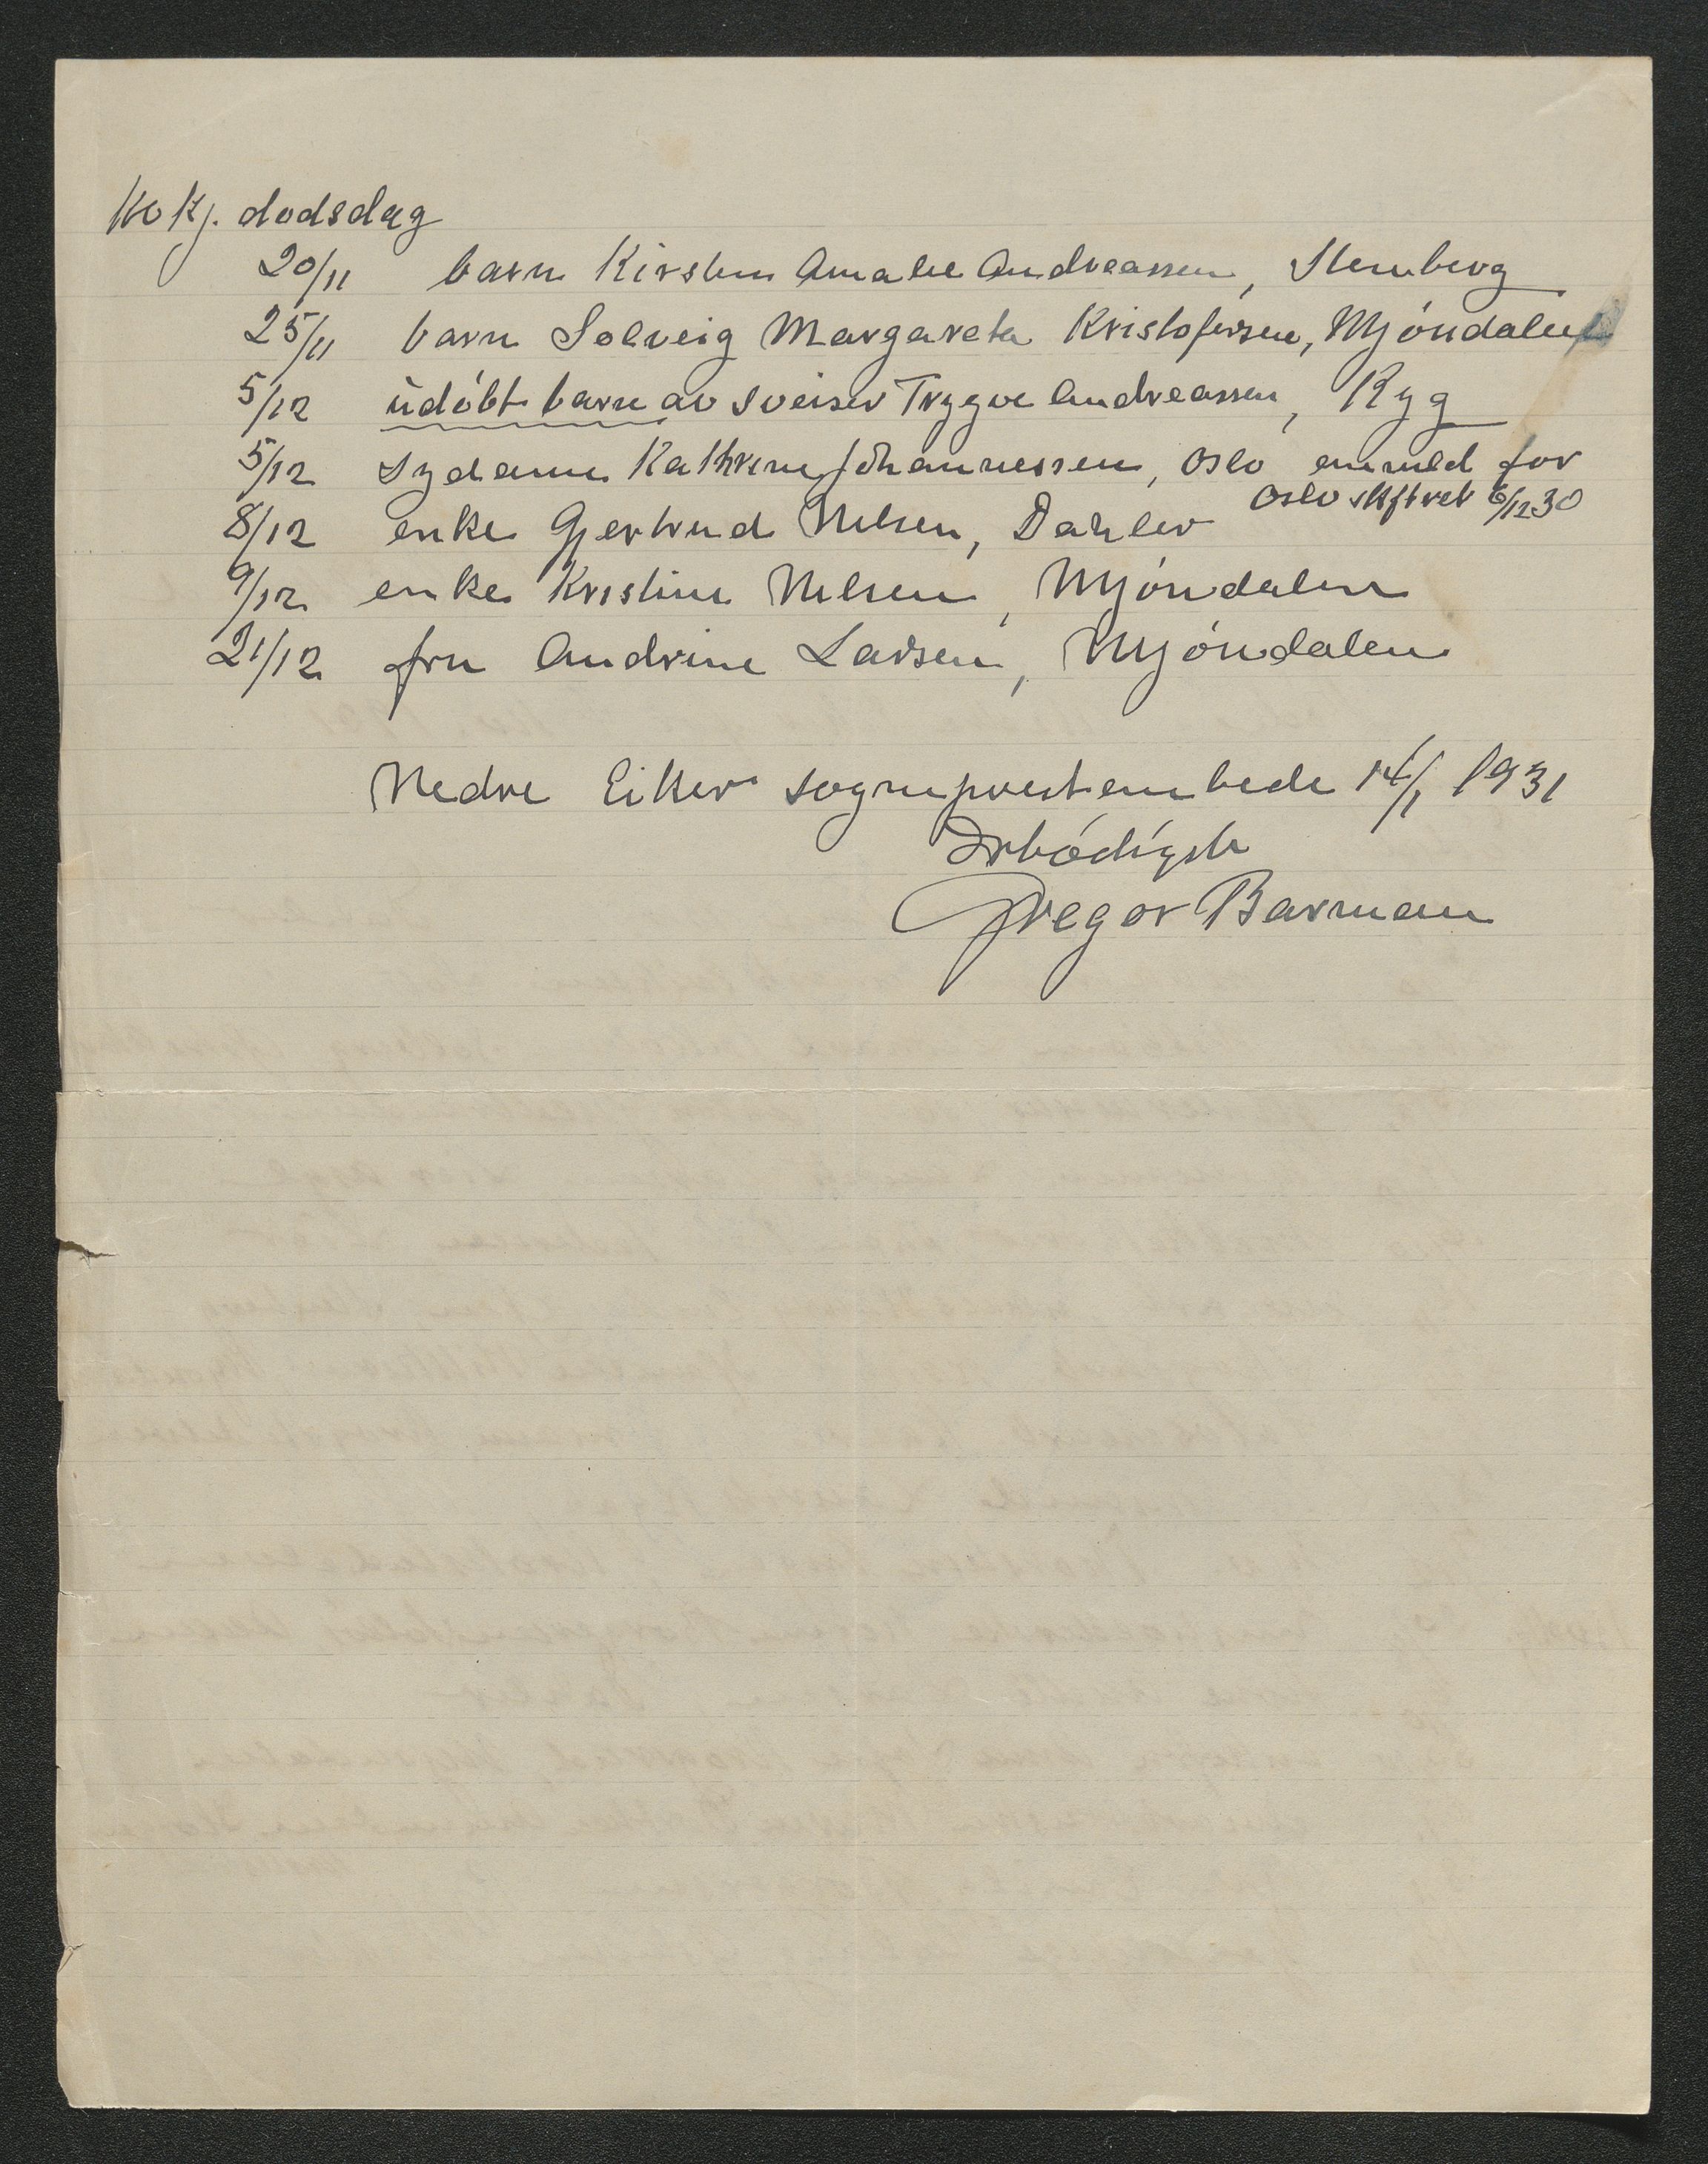 Kokj. dødsdag
20/11 barn Kirsten Amalie Andreassen, Stenberg
25/11 barn Solveig Margareta Kristofersen, Mjöndalen
5/12 udöbt barn av sveiser Trygve Andreassen, Ryg
5/12 sydame Kathrine Johannessen, Oslo anmeld for
Oslo skifteret 6/12 30
8/12 enke Gjertrud Nilsen, Dahler
9/12 enke Kristine Nilsen, Mjöndalen
21/12 fru Andrine Larsen, Mjöndalen
Nedre Eiker sogneprestembede 14/1 1931
Ærbödigst
Gregor Barman